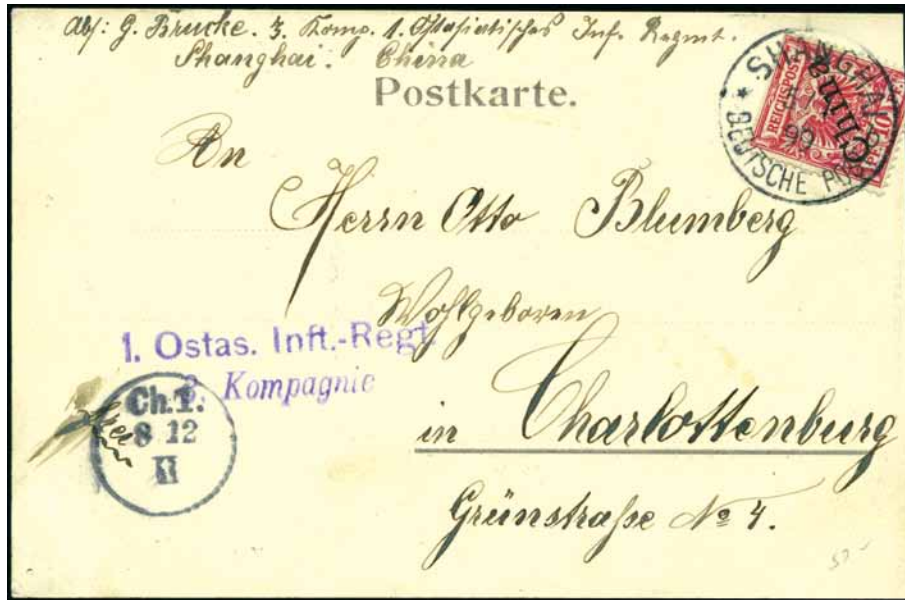 Abs: G. Brucke. 3. Komp. 1. Ostasiatisches Inf. Regmt.
Shanghai. China
Postkarte.
SHANGHAI
DEUTSCHE POST
REICHSPOST
China
An
Herrn Otto Blumberg
Wohlgeboren
1. Ostas. Inft.-Regt.
3. Kompagnie
Ch.1.
8 12
in Charlottenburg
Grünstraße No 4.